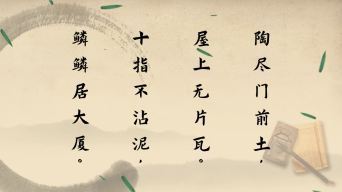 陶尽门前土，
屋上无片瓦。
十指不沾泥，
鳞鳞居大厦。